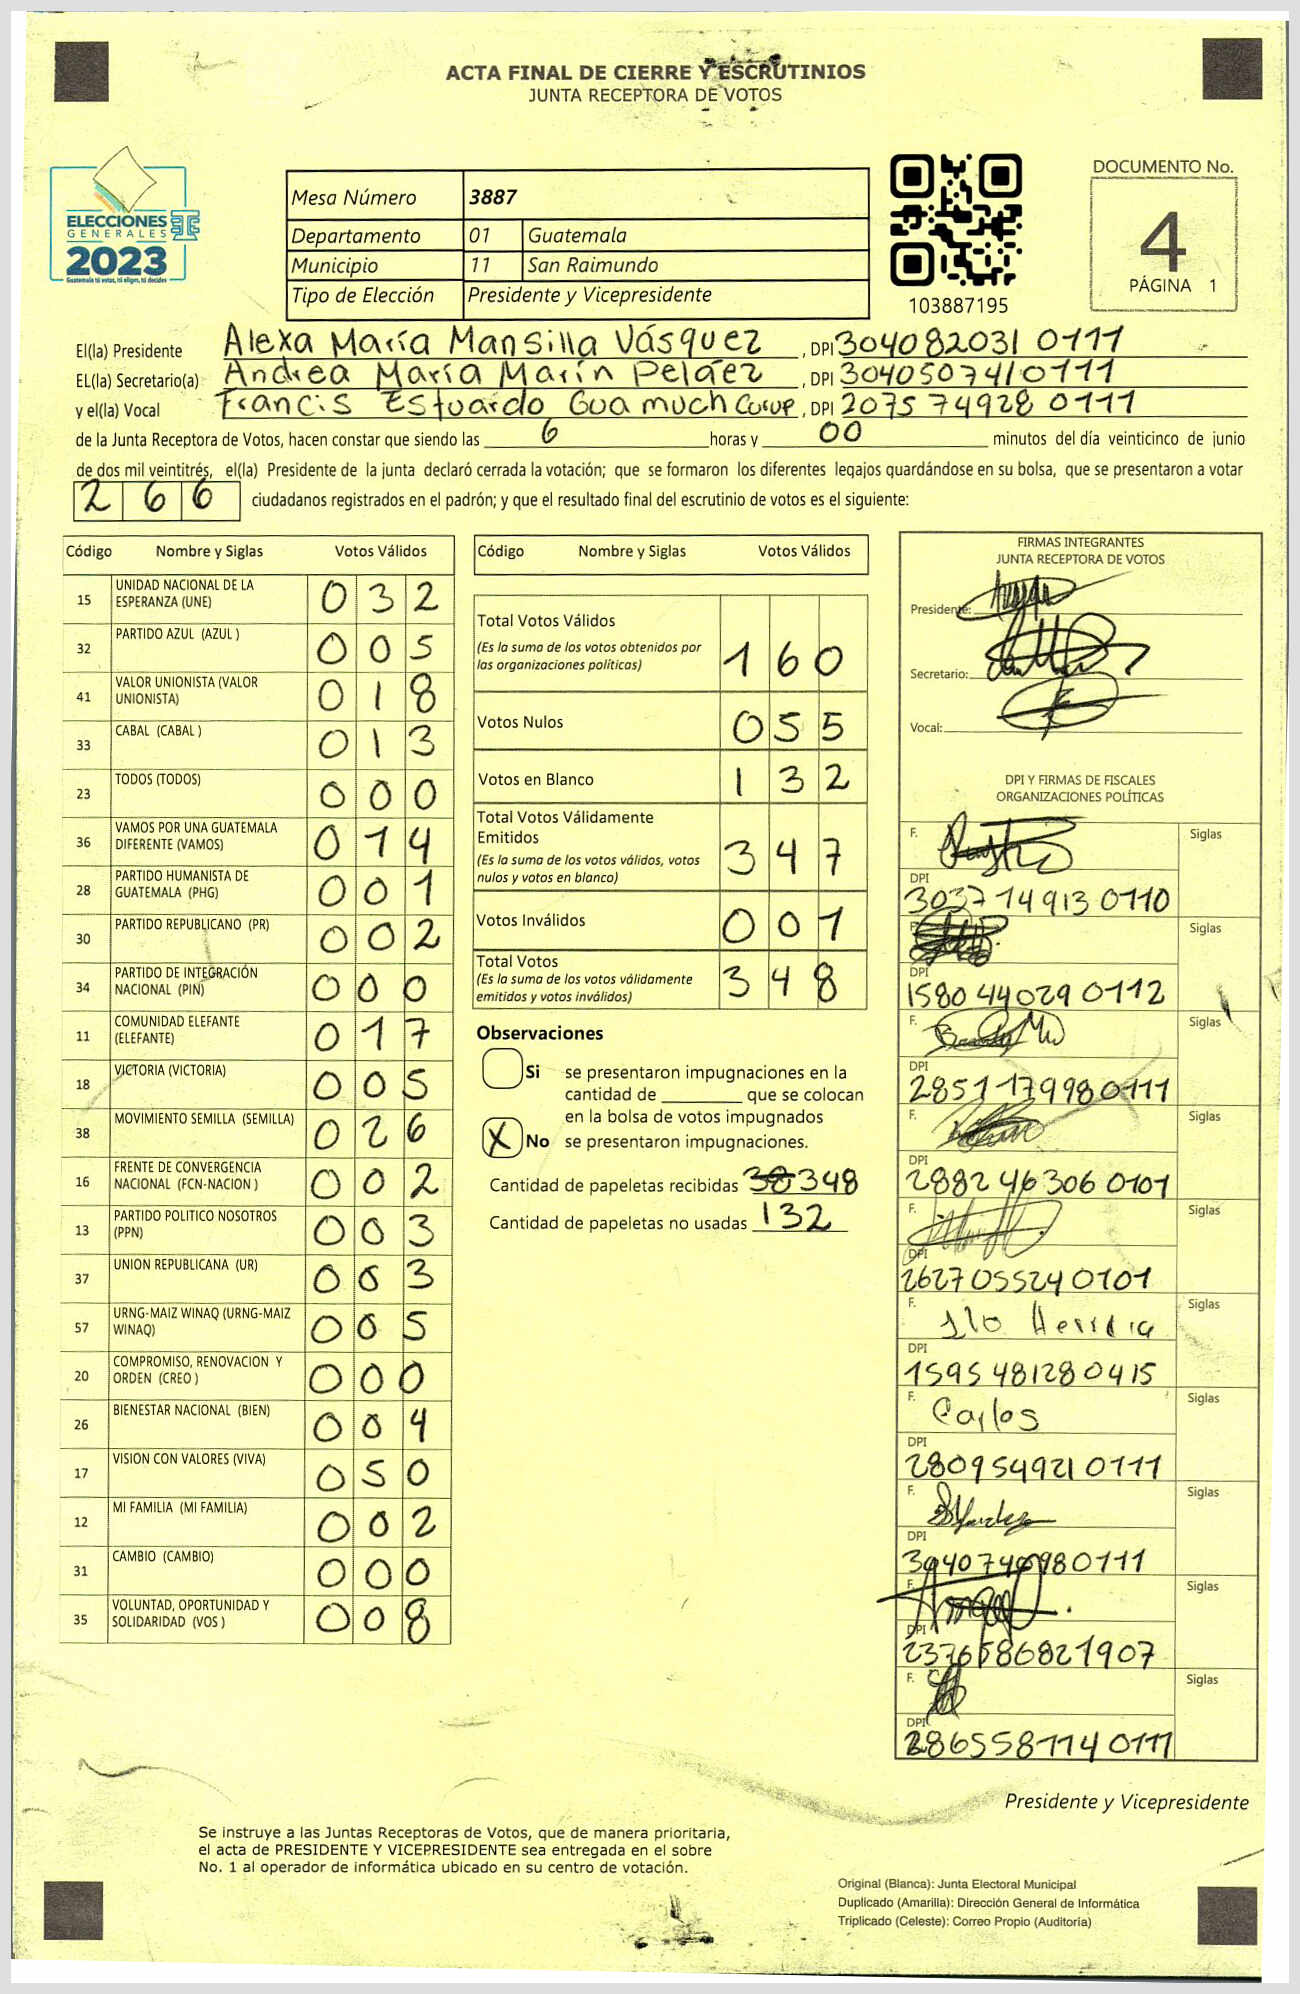 ACTA FINAL DE CIERRE Y ESCRUTINIOS
JUNTA RECEPTORA DE VOTOS
ELECCIONES
GENERALES
2023
Guatemala tú votas, tú eliges, tú decides
Mesa Número 3887
Departamento 01 Guatemala
Municipio 11 San Raimundo
Tipo de Elección Presidente y Vicepresidente
103887195
DOCUMENTO No.
4
PÁGINA 1
El(la) Presidente Alexa María Mansilla Vásquez, DPI 304082031 0111
EL(la) Secretario(a) Andrea María Marín Peláez, DPI 3040507410111
y el(la) Vocal Francis Estuardo Guamuch, DPI 2075 74928 0111
de la Junta Receptora de Votos, hacen constar que siendo las 6 horas y 00 minutos del día veinticinco de junio
de dos mil veintitrés, el(la) Presidente de la junta declaró cerrada la votación; que se formaron los diferentes legajos quardándose en su bolsa, que se presentaron a votar
266 ciudadanos registrados en el padrón; y que el resultado final del escrutinio de votos es el siguiente:
Código Nombre y Siglas Votos Válidos
15 UNIDAD NACIONAL DE LA ESPERANZA (UNE) 032
32 PARTIDO AZUL (AZUL ) 005
41 VALOR UNIONISTA (VALOR UNIONISTA) 018
33 CABAL (CABAL ) 013
23 TODOS (TODOS) 000
36 VAMOS POR UNA GUATEMALA DIFERENTE (VAMOS) 014
28 PARTIDO HUMANISTA DE GUATEMALA (PHG) 001
30 PARTIDO REPUBLICANO (PR) 002
34 PARTIDO DE INTEGRACIÓN NACIONAL (PIN) 000
11 COMUNIDAD ELEFANTE (ELEFANTE) 017
18 VICTORIA (VICTORIA) 005
38 MOVIMIENTO SEMILLA (SEMILLA) 026
16 FRENTE DE CONVERGENCIA NACIONAL (FCN-NACION ) 002
13 PARTIDO POLITICO NOSOTROS (PPN) 003
37 UNION REPUBLICANA (UR) 003
57 URNG-MAIZ WINAQ (URNG-MAIZ WINAQ) 005
20 COMPROMISO, RENOVACION Y ORDEN (CREO ) 000
26 BIENESTAR NACIONAL (BIEN) 004
17 VISION CON VALORES (VIVA) 050
12 MI FAMILIA (MI FAMILIA) 002
31 CAMBIO (CAMBIO) 000
35 VOLUNTAD, OPORTUNIDAD Y SOLIDARIDAD (VOS ) 008
Código Nombre y Siglas Votos Válidos
Total Votos Válidos 160
(Es la suma de los votos obtenidos por
las organizaciones políticas)
Votos Nulos 055
Votos en Blanco 132
Total Votos Válidamente
Emitidos 347
(Es la suma de los votos válidos, votos
nulos y votos en blanco)
Votos Inválidos 001
Total Votos 348
(Es la suma de los votos válidamente
emitidos y votos inválidos)
Observaciones
Si se presentaron impugnaciones en la
cantidad de ________ que se colocan
en la bolsa de votos impugnados
X No se presentaron impugnaciones.
Cantidad de papeletas recibidas 348
Cantidad de papeletas no usadas 132
FIRMAS INTEGRANTES
JUNTA RECEPTORA DE VOTOS
Presidente:
Secretario:
Vocal:
DPI Y FIRMAS DE FISCALES
ORGANIZACIONES POLÍTICAS
F. Siglas
DPI
3037 14913 0110
F. Siglas
DPI
1580 44029 0112
F. Siglas
DPI
2851 17998 0111
F. Siglas
DPI
2882 46306 0101
F. Siglas
DPI
2627 05524 0101
F. Siglas
DPI
1595 48128 0415
F. Carlos Siglas
DPI
2809 54921 0111
F. Siglas
DPI
F. Siglas
DPI
2376586821907
F. Siglas
DPI
2865581140111
Presidente y Vicepresidente
Se instruye a las Juntas Receptoras de Votos, que de manera prioritaria,
el acta de PRESIDENTE Y VICEPRESIDENTE sea entregada en el sobre
No. 1 al operador de informática ubicado en su centro de votación.
Original (Blanca): Junta Electoral Municipal
Duplicado (Amarilla): Dirección General de Informática
Triplicado (Celeste): Correo Propio (Auditoría)